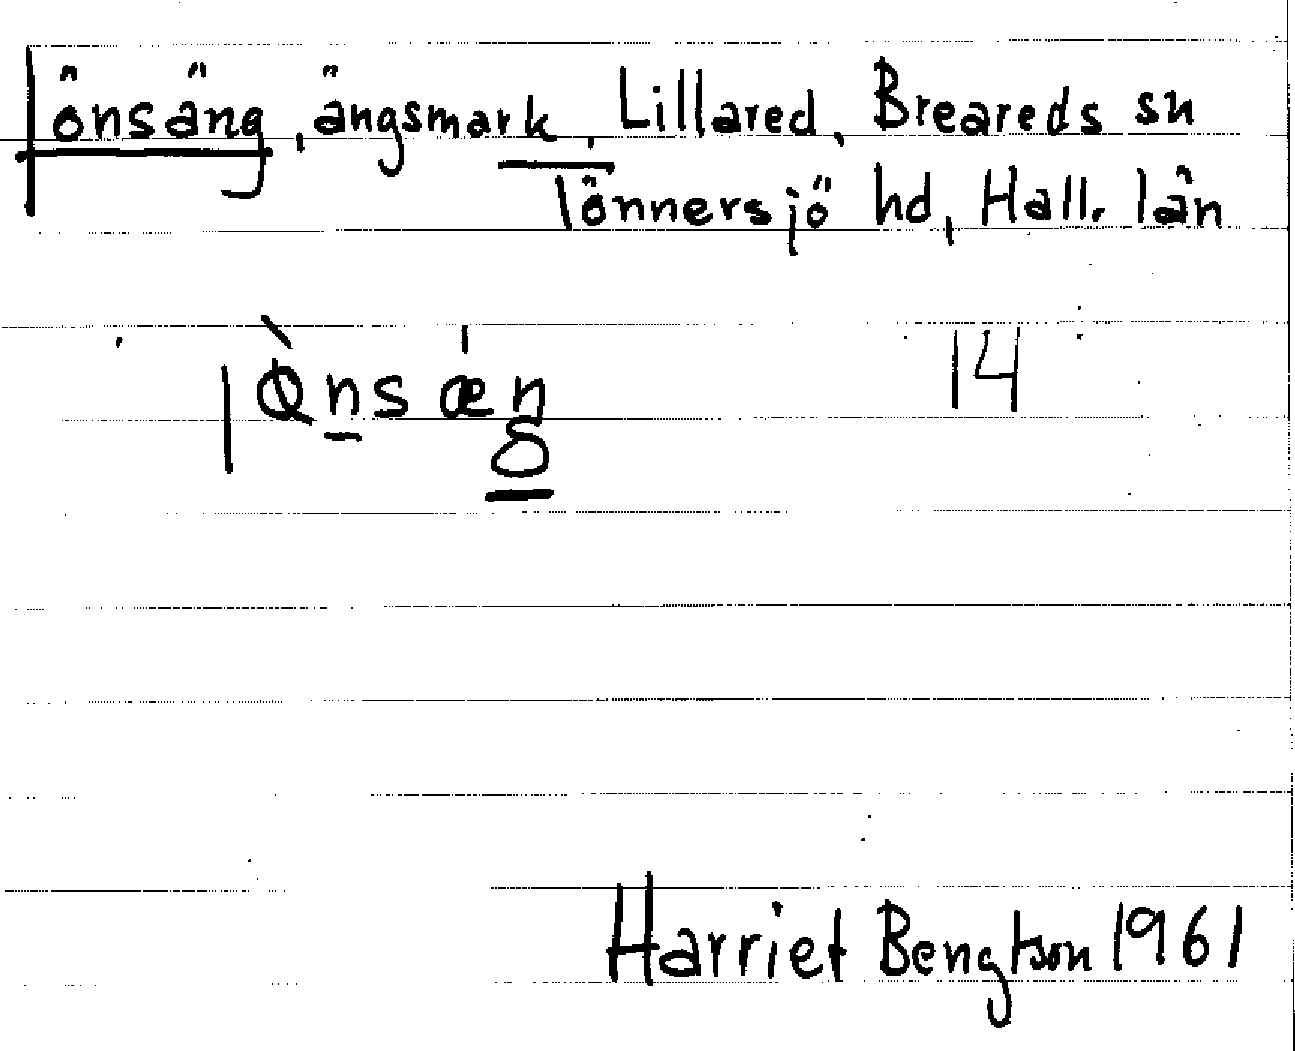 lönsäng, ängsmark, Lillared, Breareds sn
lönnersjö hd, Hall. län
lǫ̀nsæŋ 14
Harriet Bengtson 1961